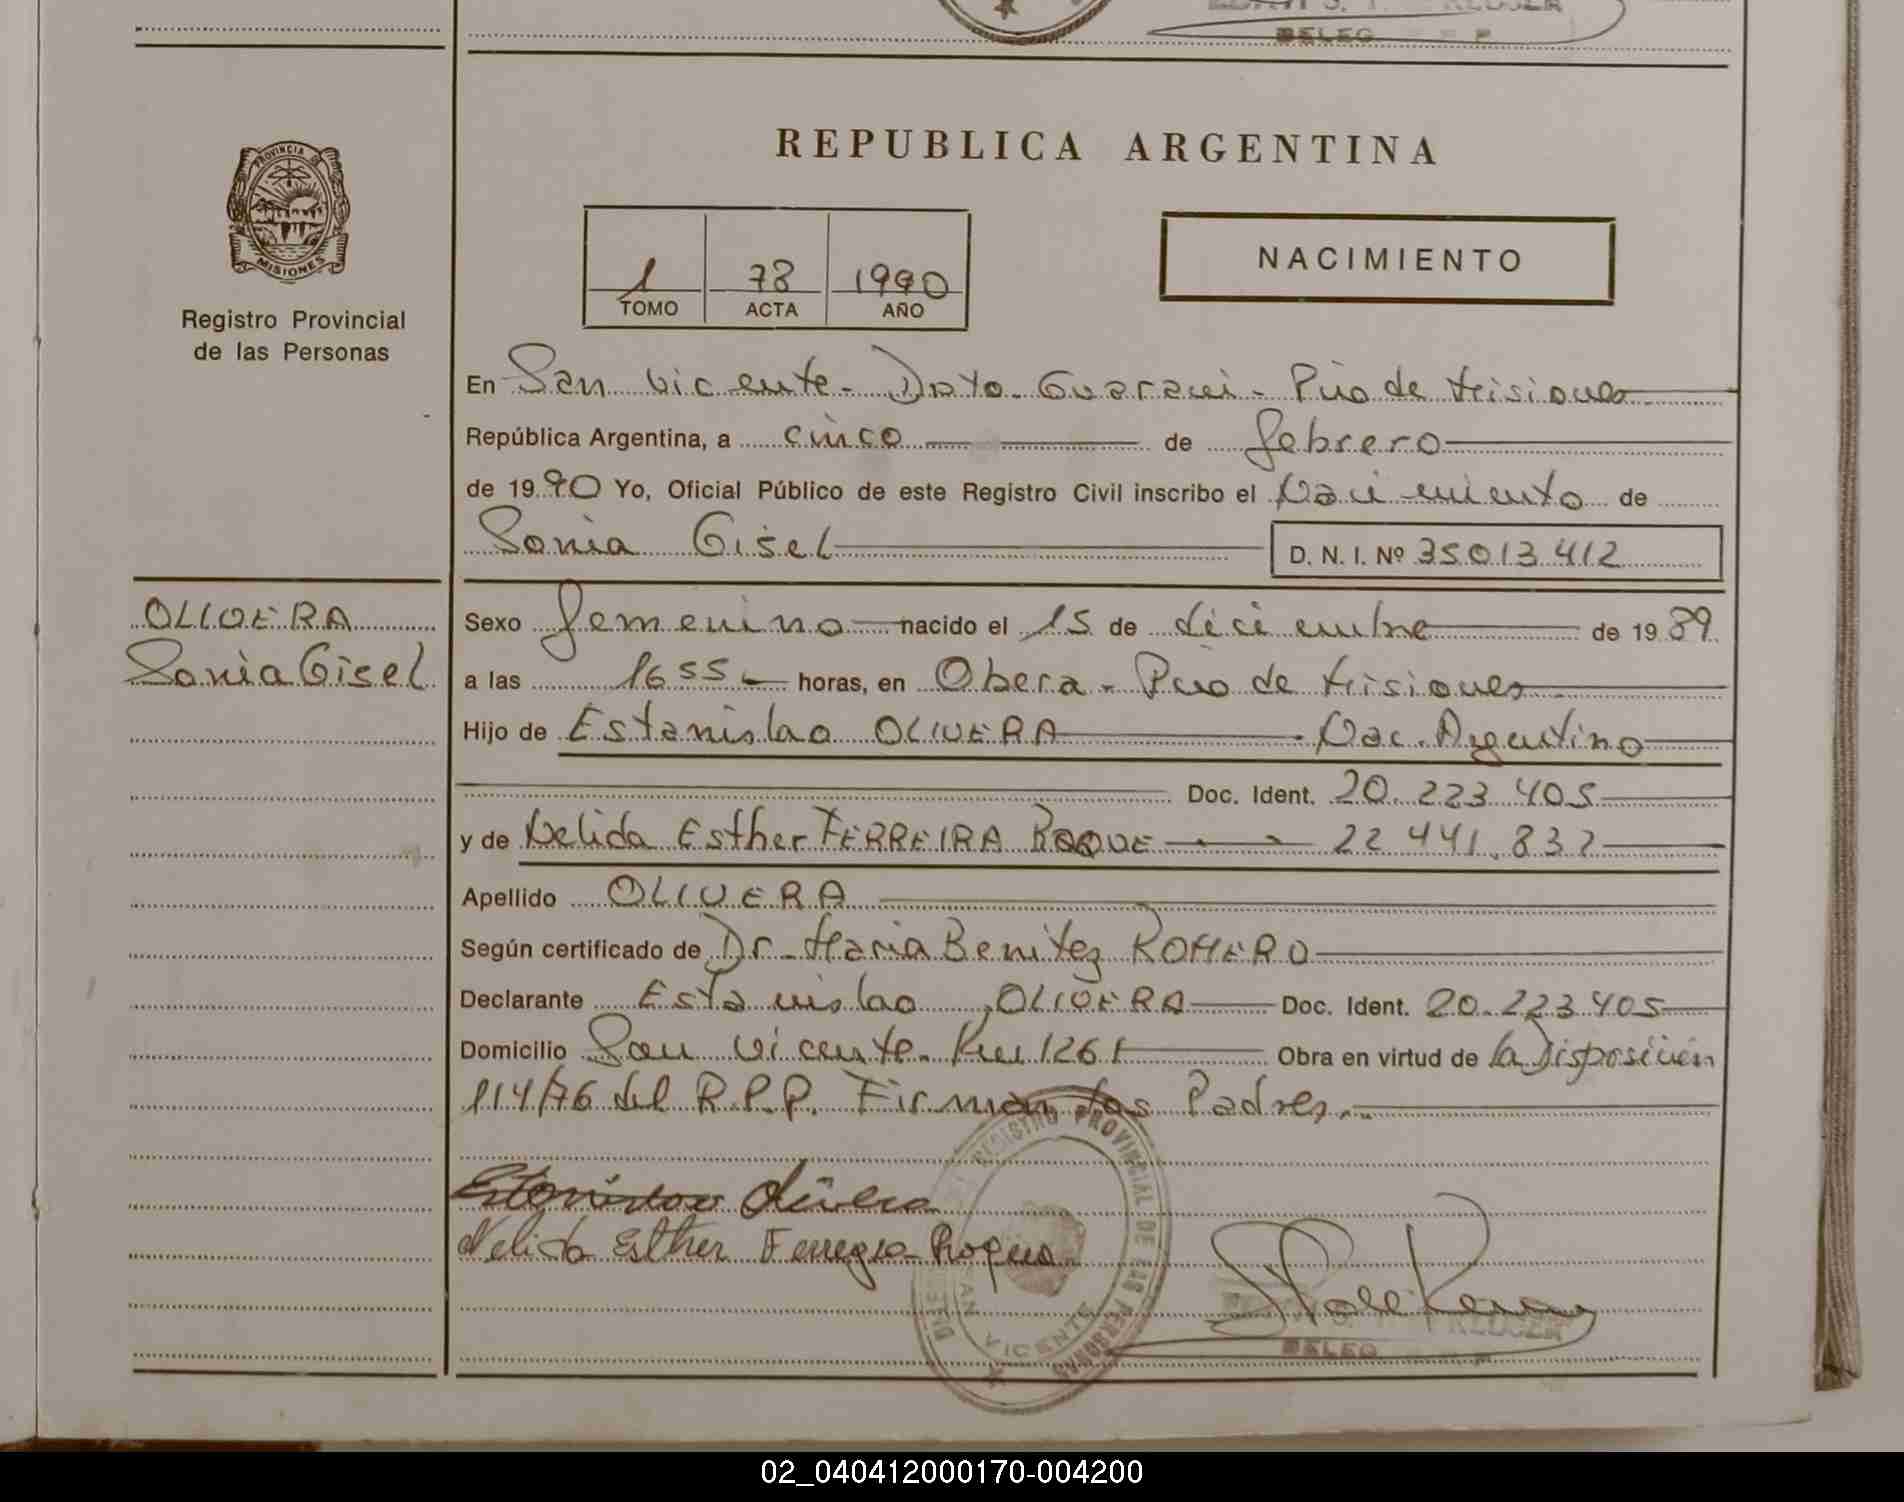 REPUBLICA ARGENTINA
PROVINCIA DE
MISIONES
Registro Provincial
de las Personas
1 78 1990
TOMO ACTA AÑO
NACIMIENTO
En San Vicente - Dpto. Guarani - Pcia de Misiones
República Argentina, a cinco de febrero
de 1990 Yo, Oficial Público de este Registro Civil inscribo el Nacimiento de
Sonia Gisel D. N. I. Nº 35013412
OLIVERA
Sonia Gisel
Sexo femenino nacido el 15 de diciembre de 1989
a las 16 55 horas, en Obera - Pcia de Misiones
Hijo de Estanislao OLIVERA Nac. Argentino
Doc. Ident. 20.223.405
y de Nelida Esther FERREIRA ROQUE 22.441.832
Apellido OLIVERA
Según certificado de Dr. Maria Benitez ROMERO
Declarante Estanislao OLIVERA Doc. Ident. 20.223.405
Domicilio San Vicente. Km 1261 Obra en virtud de la Disposición
114/76 del R.P.P. Firman los Padres.
Estanislao Olivera
Nelida Esther Ferreira Roque
REGISTRO PROVINCIAL DE LAS PERSONAS
SAN VICENTE
DELEG
02_040412000170-004200